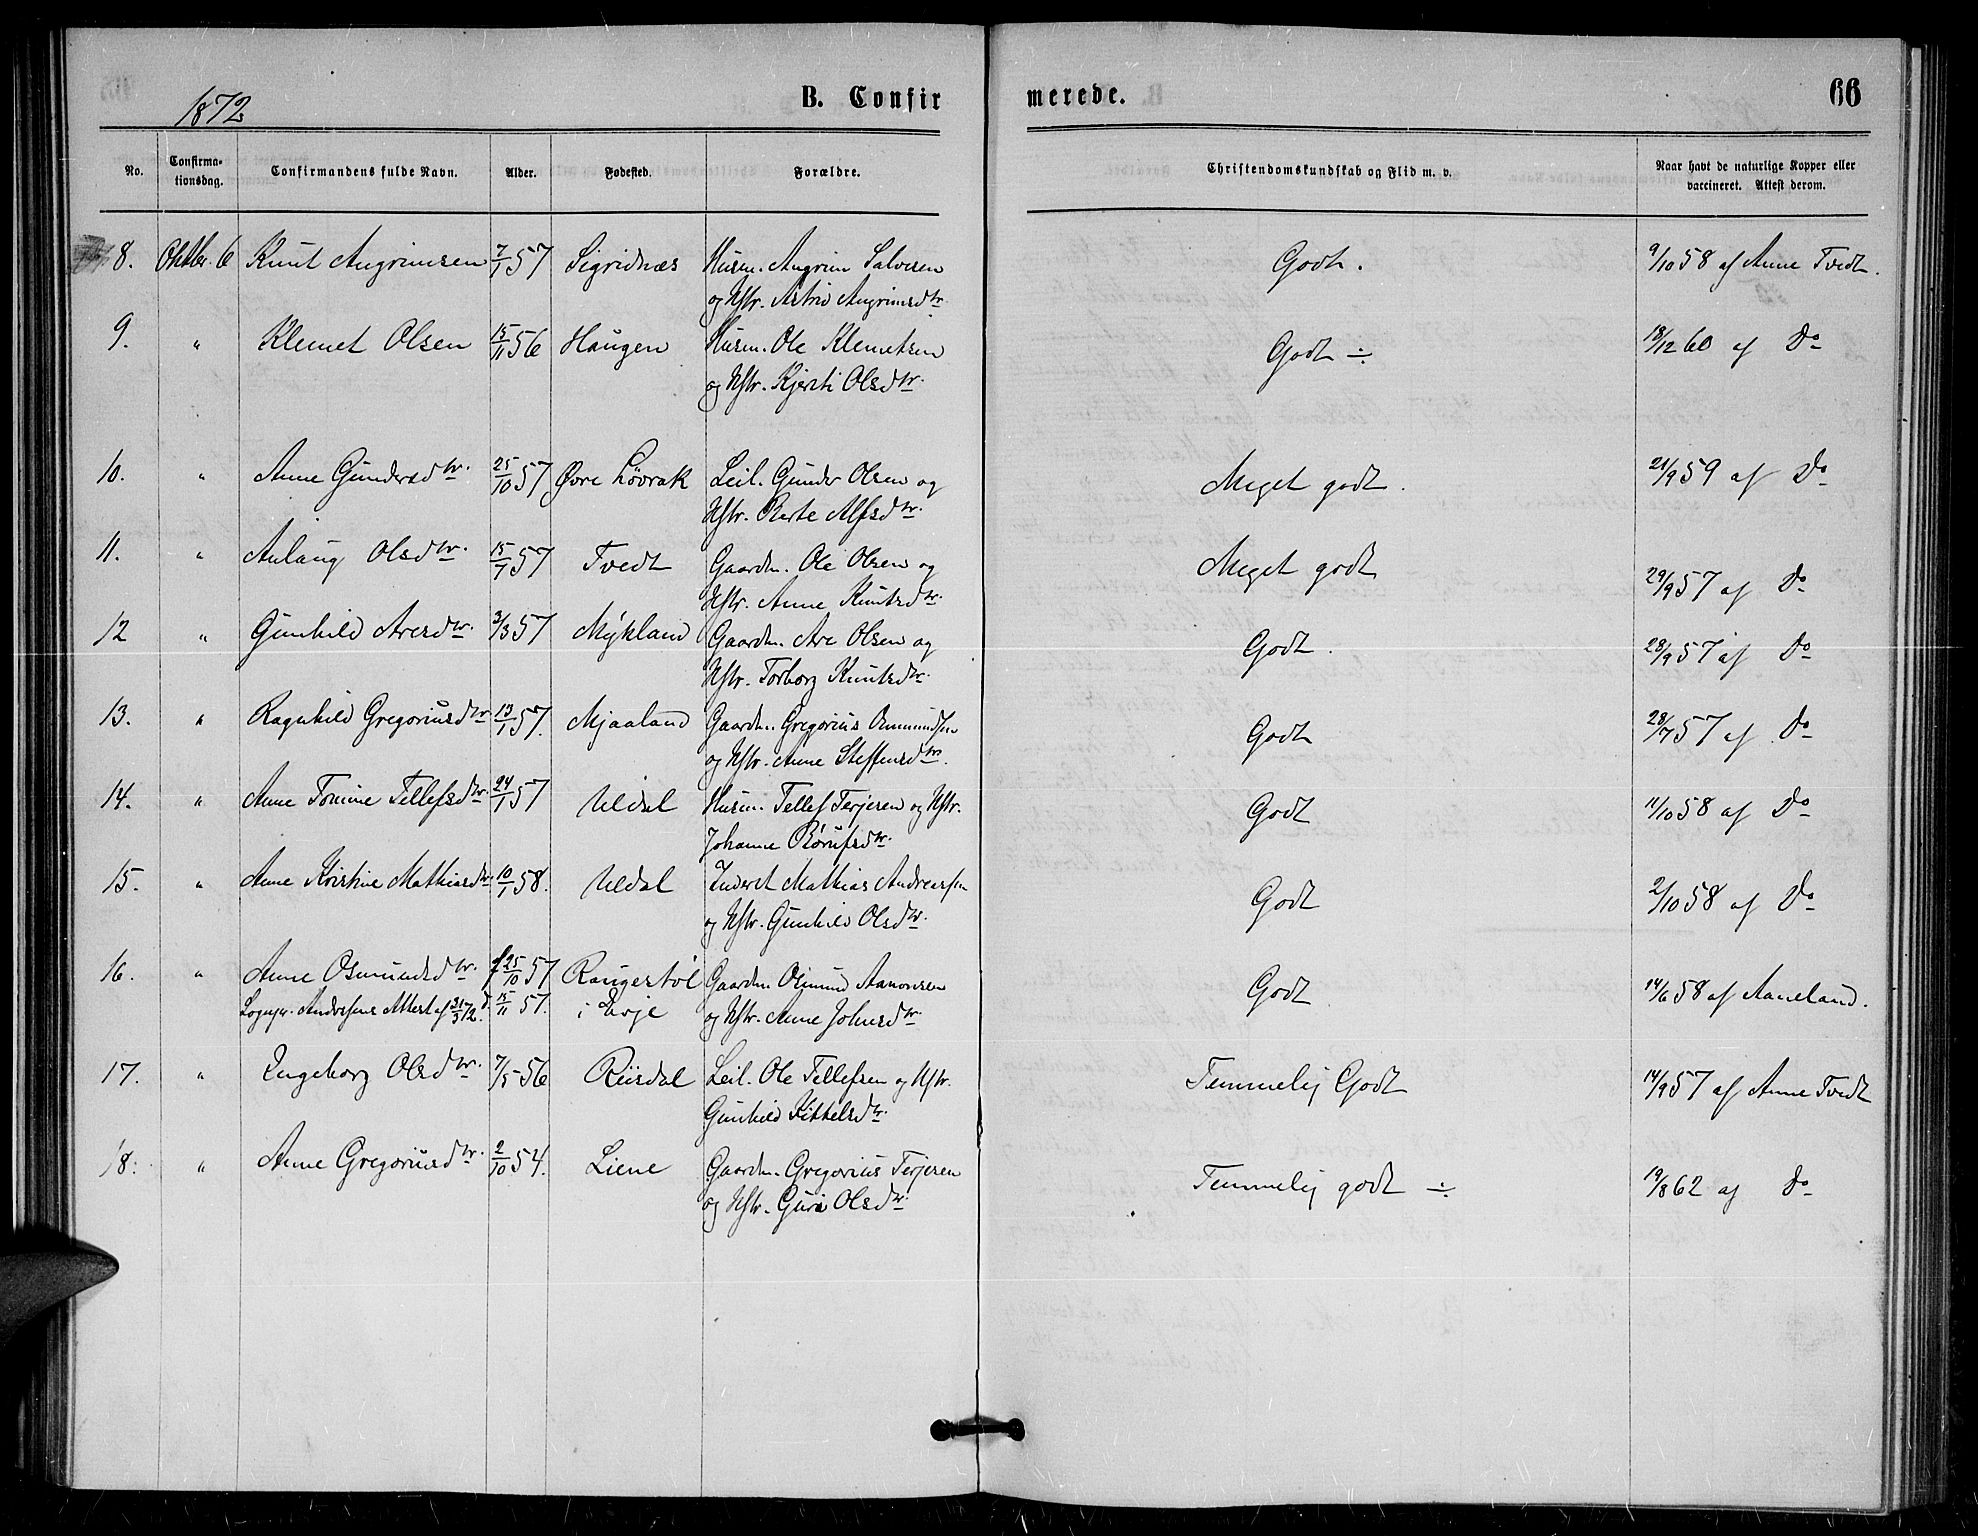 1872
B. Confir
merede.
66
No.
Confirma-
tionsdag.
Confirmandens fulde Navn.
Alder.
Fødested.
Forældre.
Christendomskundskab og Flid m. v.
Naar havt de naturlige Kopper eller
vaccineret. Attest derom.
8. Oktbr. 6 Knut Angrimsen 7/1 57 Sigridnæs Husm. Angrim Salvesen Godt. 9/10 58 af Anne Tvedt.
og Hstr. Astrid Angrimsdtr.
9. " Klemet Olsen 15/11 56 Haugen Husm. Ole Klemetsen Godt ÷ 18/12 60 af Do
og Hstr. Kjersti Olsdtr.
10. " Anne Gundersdtr. 25/10 57 Øvre Løvrak Leil. Gunder Olsen og Meget godt. 21/9 59 af Do
Hstr. Berte Alfsdtr.
11. " Aslaug Olsdtr. 15/7 57 Tvedt Gaardm. Ole Olsen og Meget godt 29/9 57 af Do
Hstr. Anne Knutsdtr.
12 " Gunhild Aresdtr. 3/3 57 Mykland Gaardm. Are Olsen og Godt. 28/9 57 af Do
Hstr. Torborg Knutsdtr.
13. " Ragnhild Gregoriusdtr. 13/1 57. Mjaaland Gaardm. Gregorius Osmundsen Godt 28/7 57 af Do
og Hstr. Anne Steffensdtr.
14. " Anne Tomine Tellefsdtr. 24/1 57 Uldal Husm. Tellef Terjesen og Hstr. Godt 11/10 58 af Do
Johanne Børufsdtr.
15. " Anne Kristine Mathiasdtr. 10/1 58. Uldal Inderst Mathias Andreassen Godt 2/10 58 af Do
og Hstr. Gunhild Olsdtr.
16. " Anne Osmundsdtr. f 25/10 57 Raugestøl Gaardm. Osmund Aanonsen Godt 14/6 58 af Aaneland.
Sognpr. Andersens Attest af 31/3 72. d. 15/11 57. i Evje og Hstr. Anne Johnsdtr.
17. " Ingeborg Olsdtr. 7/5 56 Riisdal Leil. Ole Tellefsen og Hstr. Temmelig Godt 14/9 57 af Anne Tvedt
Gunhild Kittelsdtr.
18. " Anne Gregoriusdtr. 2/10 54. Liene Gaardm. Gregorius Terjesen Temmelig godt ÷ 19/8 62 af Do
og Hstr. Guri Olsdtr.